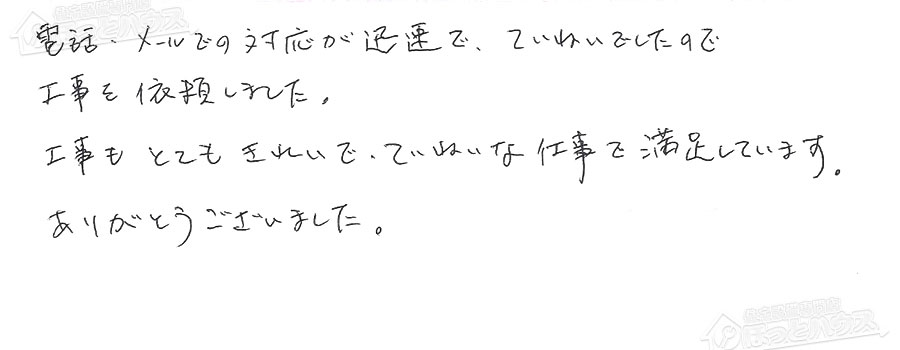 電話・メールでの対応が迅速で、ていねいでしたので
工事を依頼しました。
工事もとてもきれいで、ていねいな仕事で満足しています。
ありがとうございました。
ほっとハウス